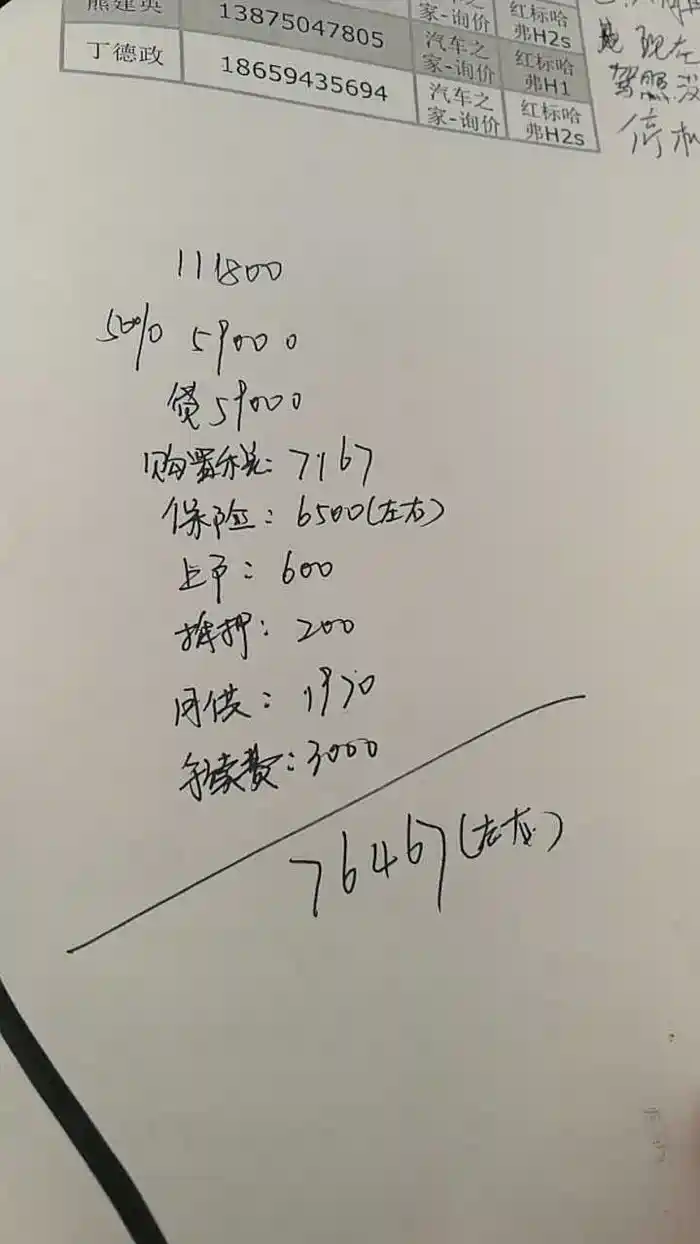 熊建英 13875047805 汽车之家-询价 红标哈弗H2s
丁德政 18659435694 汽车之家-询价 红标哈弗H1
汽车之家-询价 红标哈弗H2s
现在
驾照没
停机
111800
50% 59000
贷59000
购置税: 7167
保险: 6500(左右)
上户: 600
抵押: 200
月供: 1970
手续费: 3000
76467(左右)